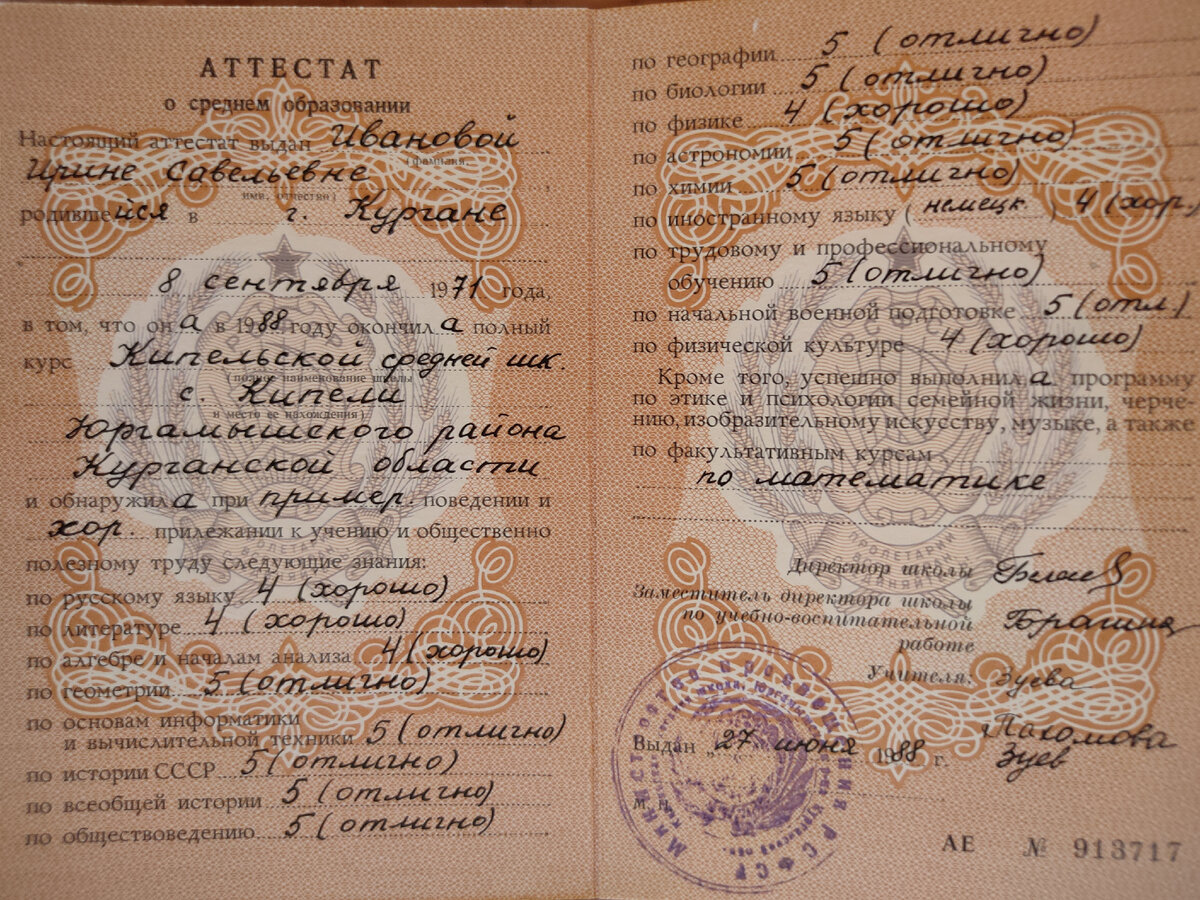 АТТЕСТАТ
о среднем образовании
Настоящий аттестат выдан Ивановой
(фамилия,
Ирине Савельевне
имя, отчество)
родившейся в г. Кургане
8 сентября 1971 года,
в том, что она в 1988 году окончила полный
курс Кипельской средней шк.
(полное наименование школы
с. Кипели
и место ее нахождения)
Юргамышского района
Курганской области
и обнаружила при пример. поведении и
хор. прилежании к учению и общественно
полезному труду следующие знания:
по русскому языку 4 (хорошо)
по литературе 4 (хорошо)
по алгебре и началам анализа 4 (хорошо)
по геометрии 5 (отлично)
по основам информатики
и вычислительной техники 5 (отлично)
по истории СССР 5 (отлично)
по всеобщей истории 5 (отлично)
по обществоведению 5 (отлично)
по географии 5 (отлично)
по биологии 5 (отлично)
по физике 4 (хорошо)
по астрономии 5 (отлично)
по химии 5 (отлично)
по иностранному языку (немецк.) 4 (хор.)
по трудовому и профессиональному
обучению 5 (отлично)
по начальной военной подготовке 5 (отл.)
по физической культуре 4 (хорошо)
Кроме того, успешно выполнила программу
по этике и психологии семейной жизни, черче-
нию, изобразительному искусству, музыке, а также
по факультативным курсам
по математике
Директор школы
Заместитель директора школы
по учебно-воспитательной Брагина
работе
Учителя: Зуева
Выдан „27" июня 1988 г.
Зуев
М. П.
МИНИСТЕРСТВО ПРОСВЕЩЕНИЯ РСФСР
АЕ № 913717